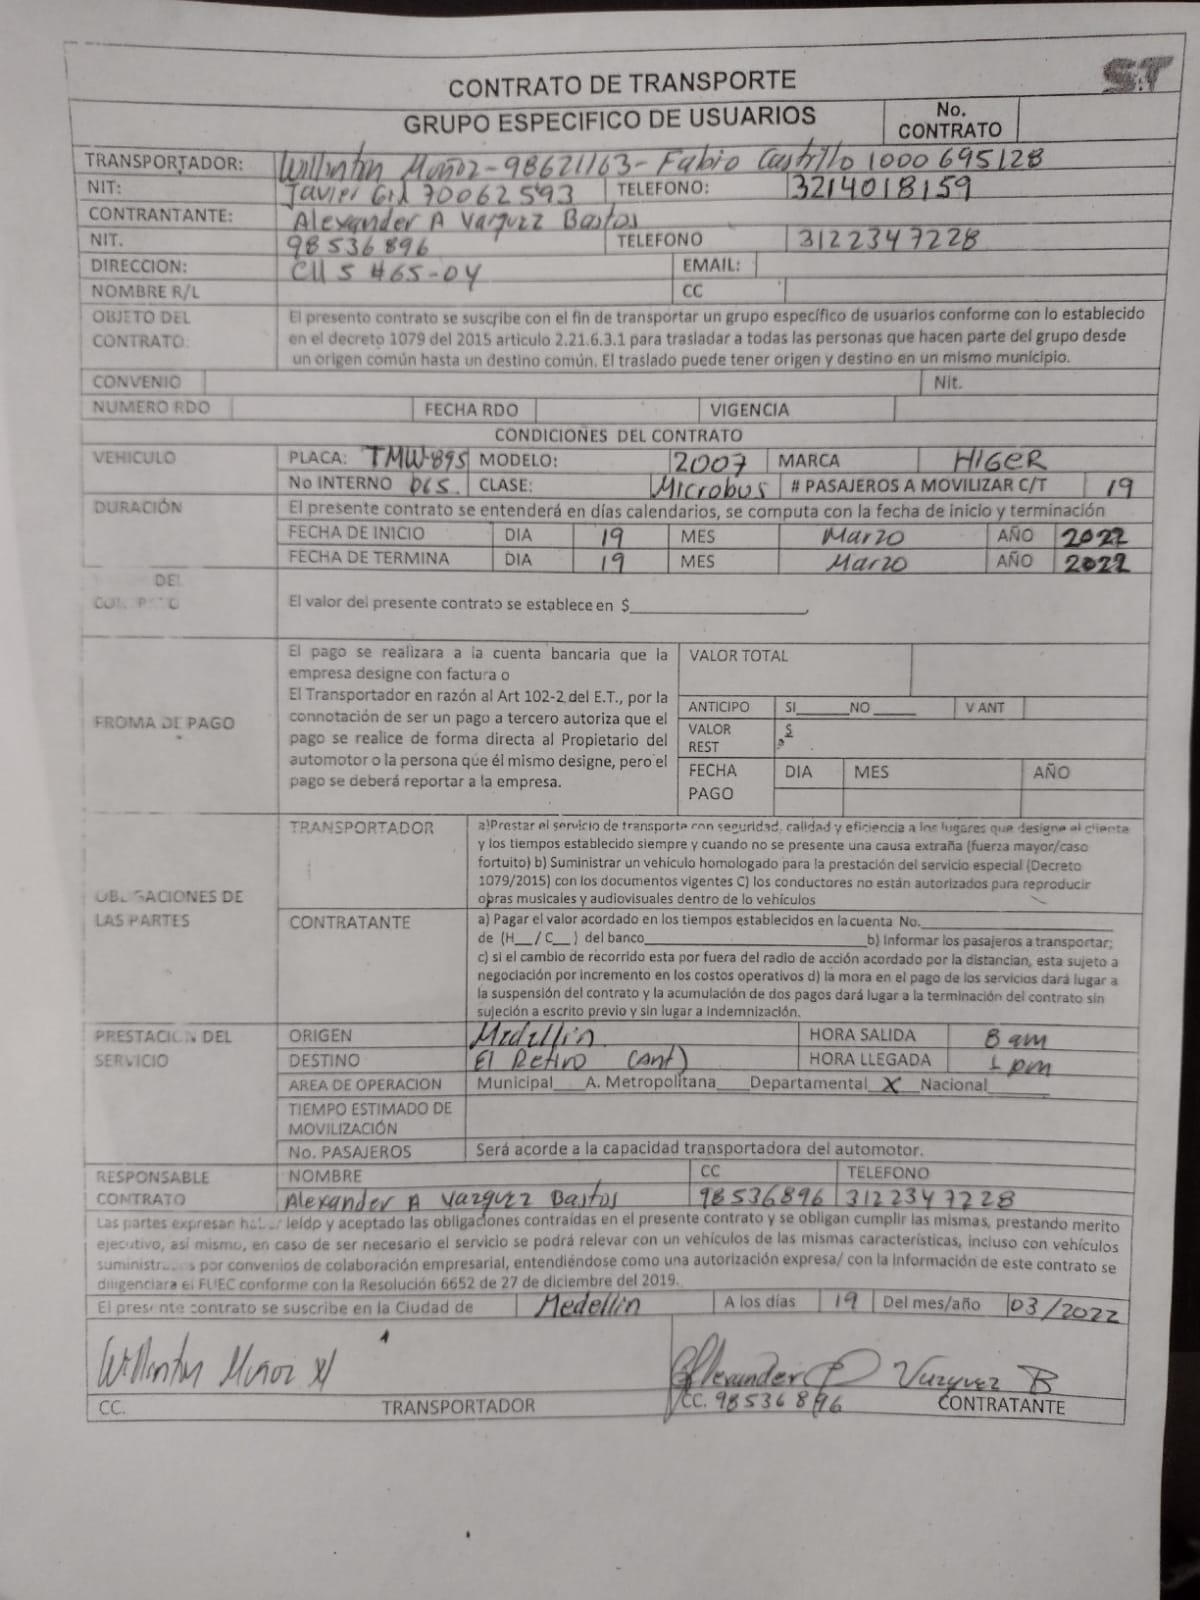 ST
CONTRATO DE TRANSPORTE
GRUPO ESPECIFICO DE USUARIOS
No. CONTRATO
TRANSPORTADOR: Willinton Muñoz-98621163- Fabio Castrillo 1000695128
NIT: Javier Gil 70062593 TELEFONO: 3214018159
CONTRANTANTE: Alexander A Vazquez Bastos
NIT. 98536896 TELEFONO 3122347228
DIRECCION: Cll 5 #65-04 EMAIL:
NOMBRE R/L CC
OBJETO DEL CONTRATO: El presento contrato se suscribe con el fin de transportar un grupo específico de usuarios conforme con lo establecido
en el decreto 1079 del 2015 articulo 2.21.6.3.1 para trasladar a todas las personas que hacen parte del grupo desde
un origen común hasta un destino común. El traslado puede tener origen y destino en un mismo municipio.
CONVENIO Nit.
NUMERO RDO FECHA RDO VIGENCIA
CONDICIONES DEL CONTRATO
VEHICULO PLACA: TMW-895 MODELO: 2007 MARCA HIGER
No INTERNO 065. CLASE: Microbus # PASAJEROS A MOVILIZAR C/T 19
DURACIÓN El presente contrato se entenderá en días calendarios, se computa con la fecha de inicio y terminación
FECHA DE INICIO DIA 19 MES Marzo AÑO 2022
FECHA DE TERMINA DIA 19 MES Marzo AÑO 2022
DEL
El valor del presente contrato se establece en $
FROMA DE PAGO
El pago se realizara a la cuenta bancaria que la
empresa designe con factura o
El Transportador en razón al Art 102-2 del E.T., por la
connotación de ser un pago a tercero autoriza que el
pago se realice de forma directa al Propietario del
automotor o la persona que él mismo designe, pero el
pago se deberá reportar a la empresa.
VALOR TOTAL
ANTICIPO SI_____NO_____ V ANT
VALOR REST $
FECHA PAGO DIA MES AÑO
OBLIGACIONES DE LAS PARTES
TRANSPORTADOR a)Prestar el servicio de transporte con seguridad, calidad y eficiencia a los lugares que designe el cliente
y los tiempos establecido siempre y cuando no se presente una causa extraña (fuerza mayor/caso
fortuito) b) Suministrar un vehículo homologado para la prestación del servicio especial (Decreto
1079/2015) con los documentos vigentes C) los conductores no están autorizados para reproducir
obras musicales y audiovisuales dentro de lo vehículos
CONTRATANTE a) Pagar el valor acordado en los tiempos establecidos en la cuenta No.
de (H__/ C__) del banco____________b) Informar los pasajeros a transportar;
c) si el cambio de recorrido esta por fuera del radio de acción acordado por la distancian, esta sujeto a
negociación por incremento en los costos operativos d) la mora en el pago de los servicios dará lugar a
la suspensión del contrato y la acumulación de dos pagos dará lugar a la terminación del contrato sin
sujeción a escrito previo y sin lugar a Indemnización.
PRESTACION DEL SERVICIO
ORIGEN Medellin. HORA SALIDA 8 am
DESTINO El Retiro (Ant) HORA LLEGADA 1 pm
AREA DE OPERACION Municipal___A. Metropolitana___Departamental X Nacional
TIEMPO ESTIMADO DE MOVILIZACIÓN
No. PASAJEROS Será acorde a la capacidad transportadora del automotor.
RESPONSABLE CONTRATO NOMBRE CC TELEFONO
Alexander A Vazquez Bastos 98536896 3122347228
Las partes expresan haber leído y aceptado las obligaciones contraídas en el presente contrato y se obligan cumplir las mismas, prestando merito
ejecutivo, así mismo, en caso de ser necesario el servicio se podrá relevar con un vehículos de las mismas características, incluso con vehículos
suministrados por convenios de colaboración empresarial, entendiéndose como una autorización expresa/ con la información de este contrato se
diligenciara el FUEC conforme con la Resolución 6652 de 27 de diciembre del 2019.
El presente contrato se suscribe en la Ciudad de Medellin A los días 19 Del mes/año 03/2022
Willinton Muñoz M
Alexander A Vazquez B
CC. TRANSPORTADOR
CC. 98536896 CONTRATANTE